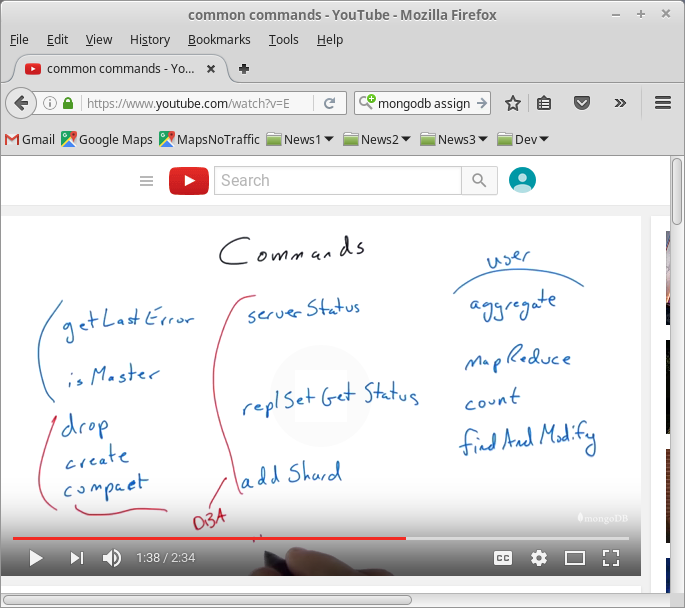 common commands - YouTube - Mozilla Firefox
File Edit View History Bookmarks Tools Help
common commands - Yo...
https://www.youtube.com/watch?v=E
mongodb assign
Gmail Google Maps MapsNoTraffic News1 News2 News3 Dev
Search
Commands
user
getLastError
isMaster
drop
create
compact
serverStatus
replSetGetStatus
addShard
DBA
aggregate
mapReduce
count
findAndModify
mongoDB
1:38 / 2:34
CC